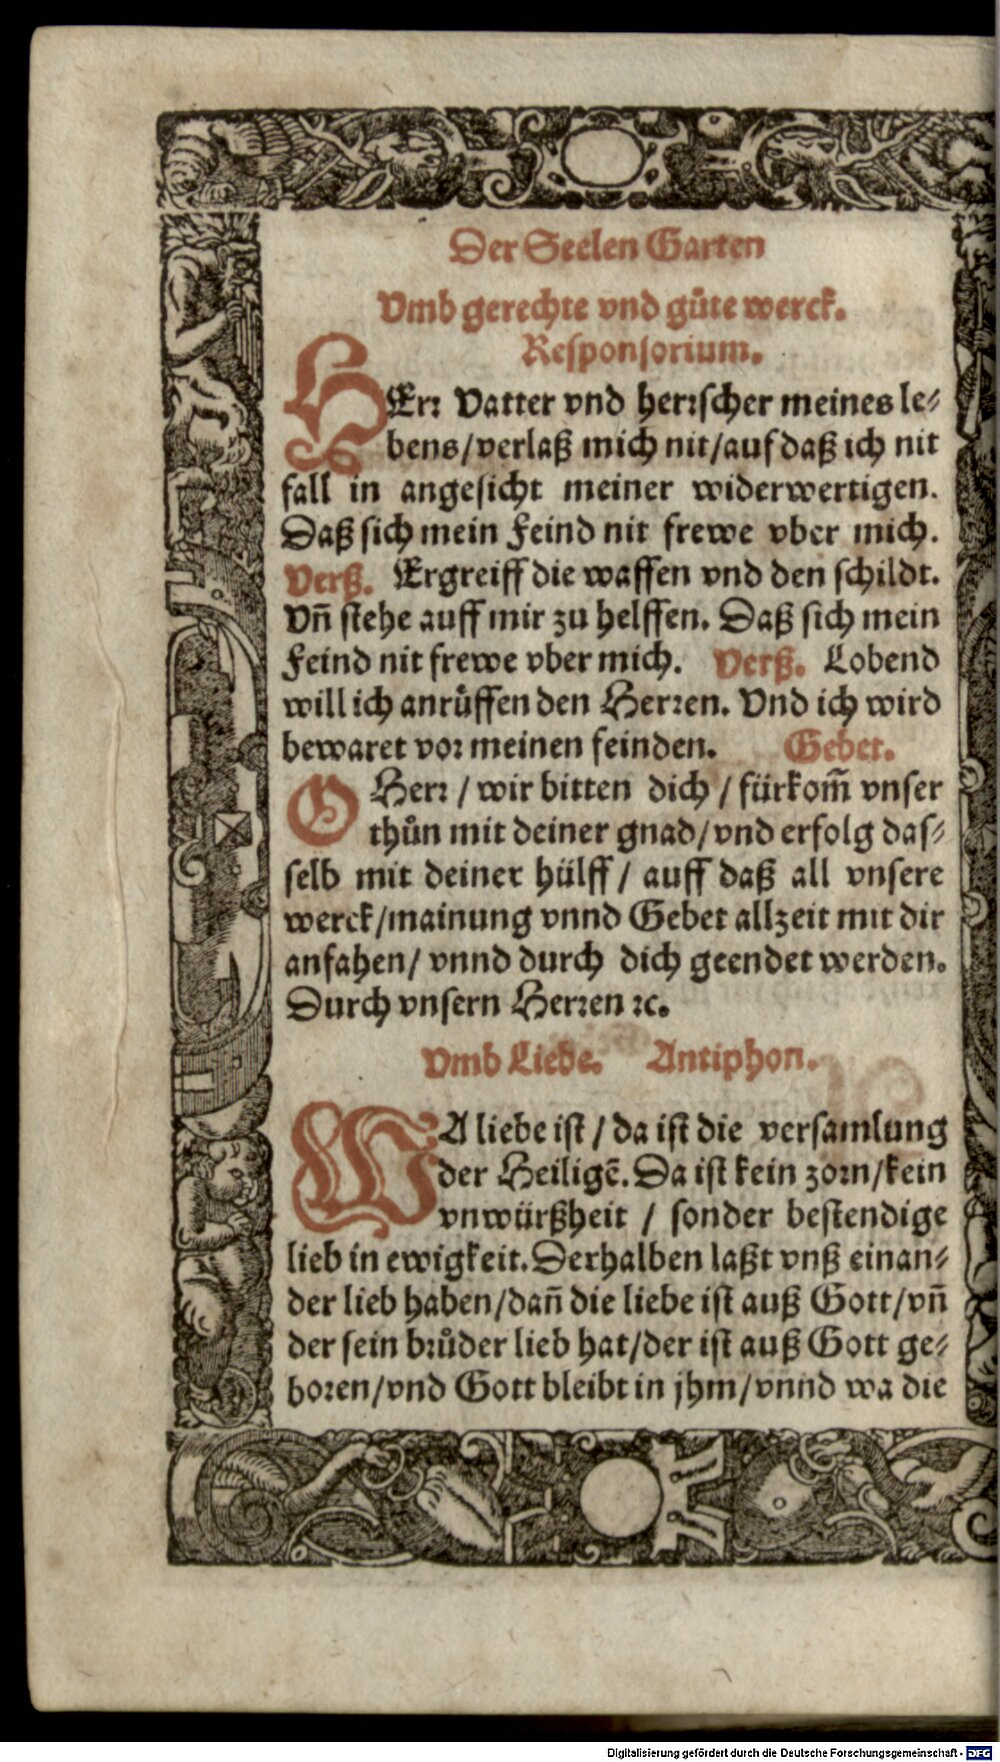 Der Seelen Garten
Vmb gerechte vnd gůte werck.
Responsorium.
HErr Vatter vnd herrscher meines le⸗
bens/verlaß mich nit/auf daß ich nit
fall in angesicht meiner widerwertigen.
Daß sich mein Feind nit frewe vber mich.
Verß. Ergreiff die waffen vnd den schildt.
Vñ stehe auff mir zu helffen. Daß sich mein
Feind nit frewe vber mich. Verß. Lobend
will ich anrůffen den Herren. Vnd ich wird
bewaret vor meinen feinden. Gebet.
O Herr / wir bitten dich / fürkom̃ vnser
thůn mit deiner gnad/vnd erfolg das⸗
selb mit deiner hülff / auff daß all vnsere
werck/mainung vnnd Gebet allzeit mit dir
anfahen/ vnnd durch dich geendet werden.
Durch vnsern Herren ꝛc.
Vmb Liebe. Antiphon.
WA liebe ist / da ist die versamlung
der Heiligẽ. Da ist kein zorn/kein
vnwürßheit / sonder bestendige
lieb in ewigkeit. Derhalben laßt vnß einan⸗
der lieb haben/dañ die liebe ist auß Gott/vñ
der sein brůder lieb hat/der ist auß Gott ge⸗
boren/vnd Gott bleibt in jhm/vnnd wa die
Digitalisierung gefördert durch die Deutsche Forschungsgemeinschaft - DFG